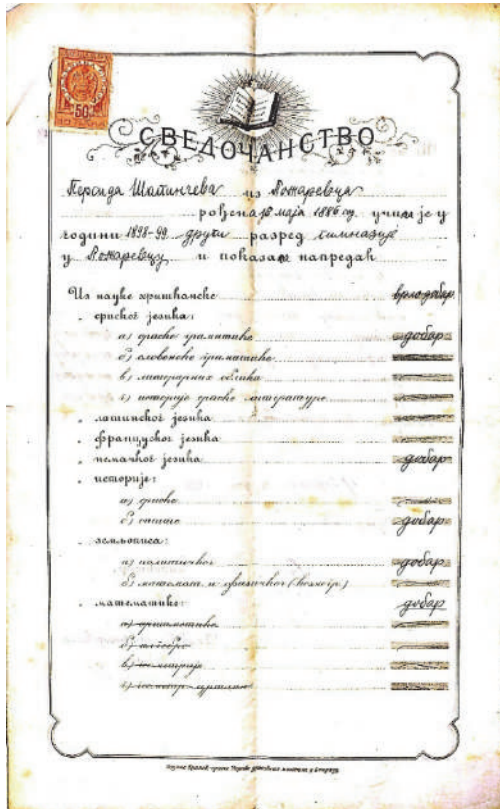 50
СВЕДОЧАНСТВО
Персида Шатинчева из Пожаревца
рођена 18 маја 1886 год. учила је у
години 1898-99 други разред гимназије
у Пожаревцу и показала напредак
Из науке хришћанске врло добар
„ српског језика:
а) српске граматике добар
б) словенске граматике
в) литерарних облика
г) историје српске литературе
„ латинског језика
„ француског језика
„ немачког језика добар
„ историје:
а) српске
б) опште добар
„ земљописа:
а) политичког добар
б) математ. и физичког (космогр.)
„ математике: добар
а) аритметике
б) алгебре
в) геометрије